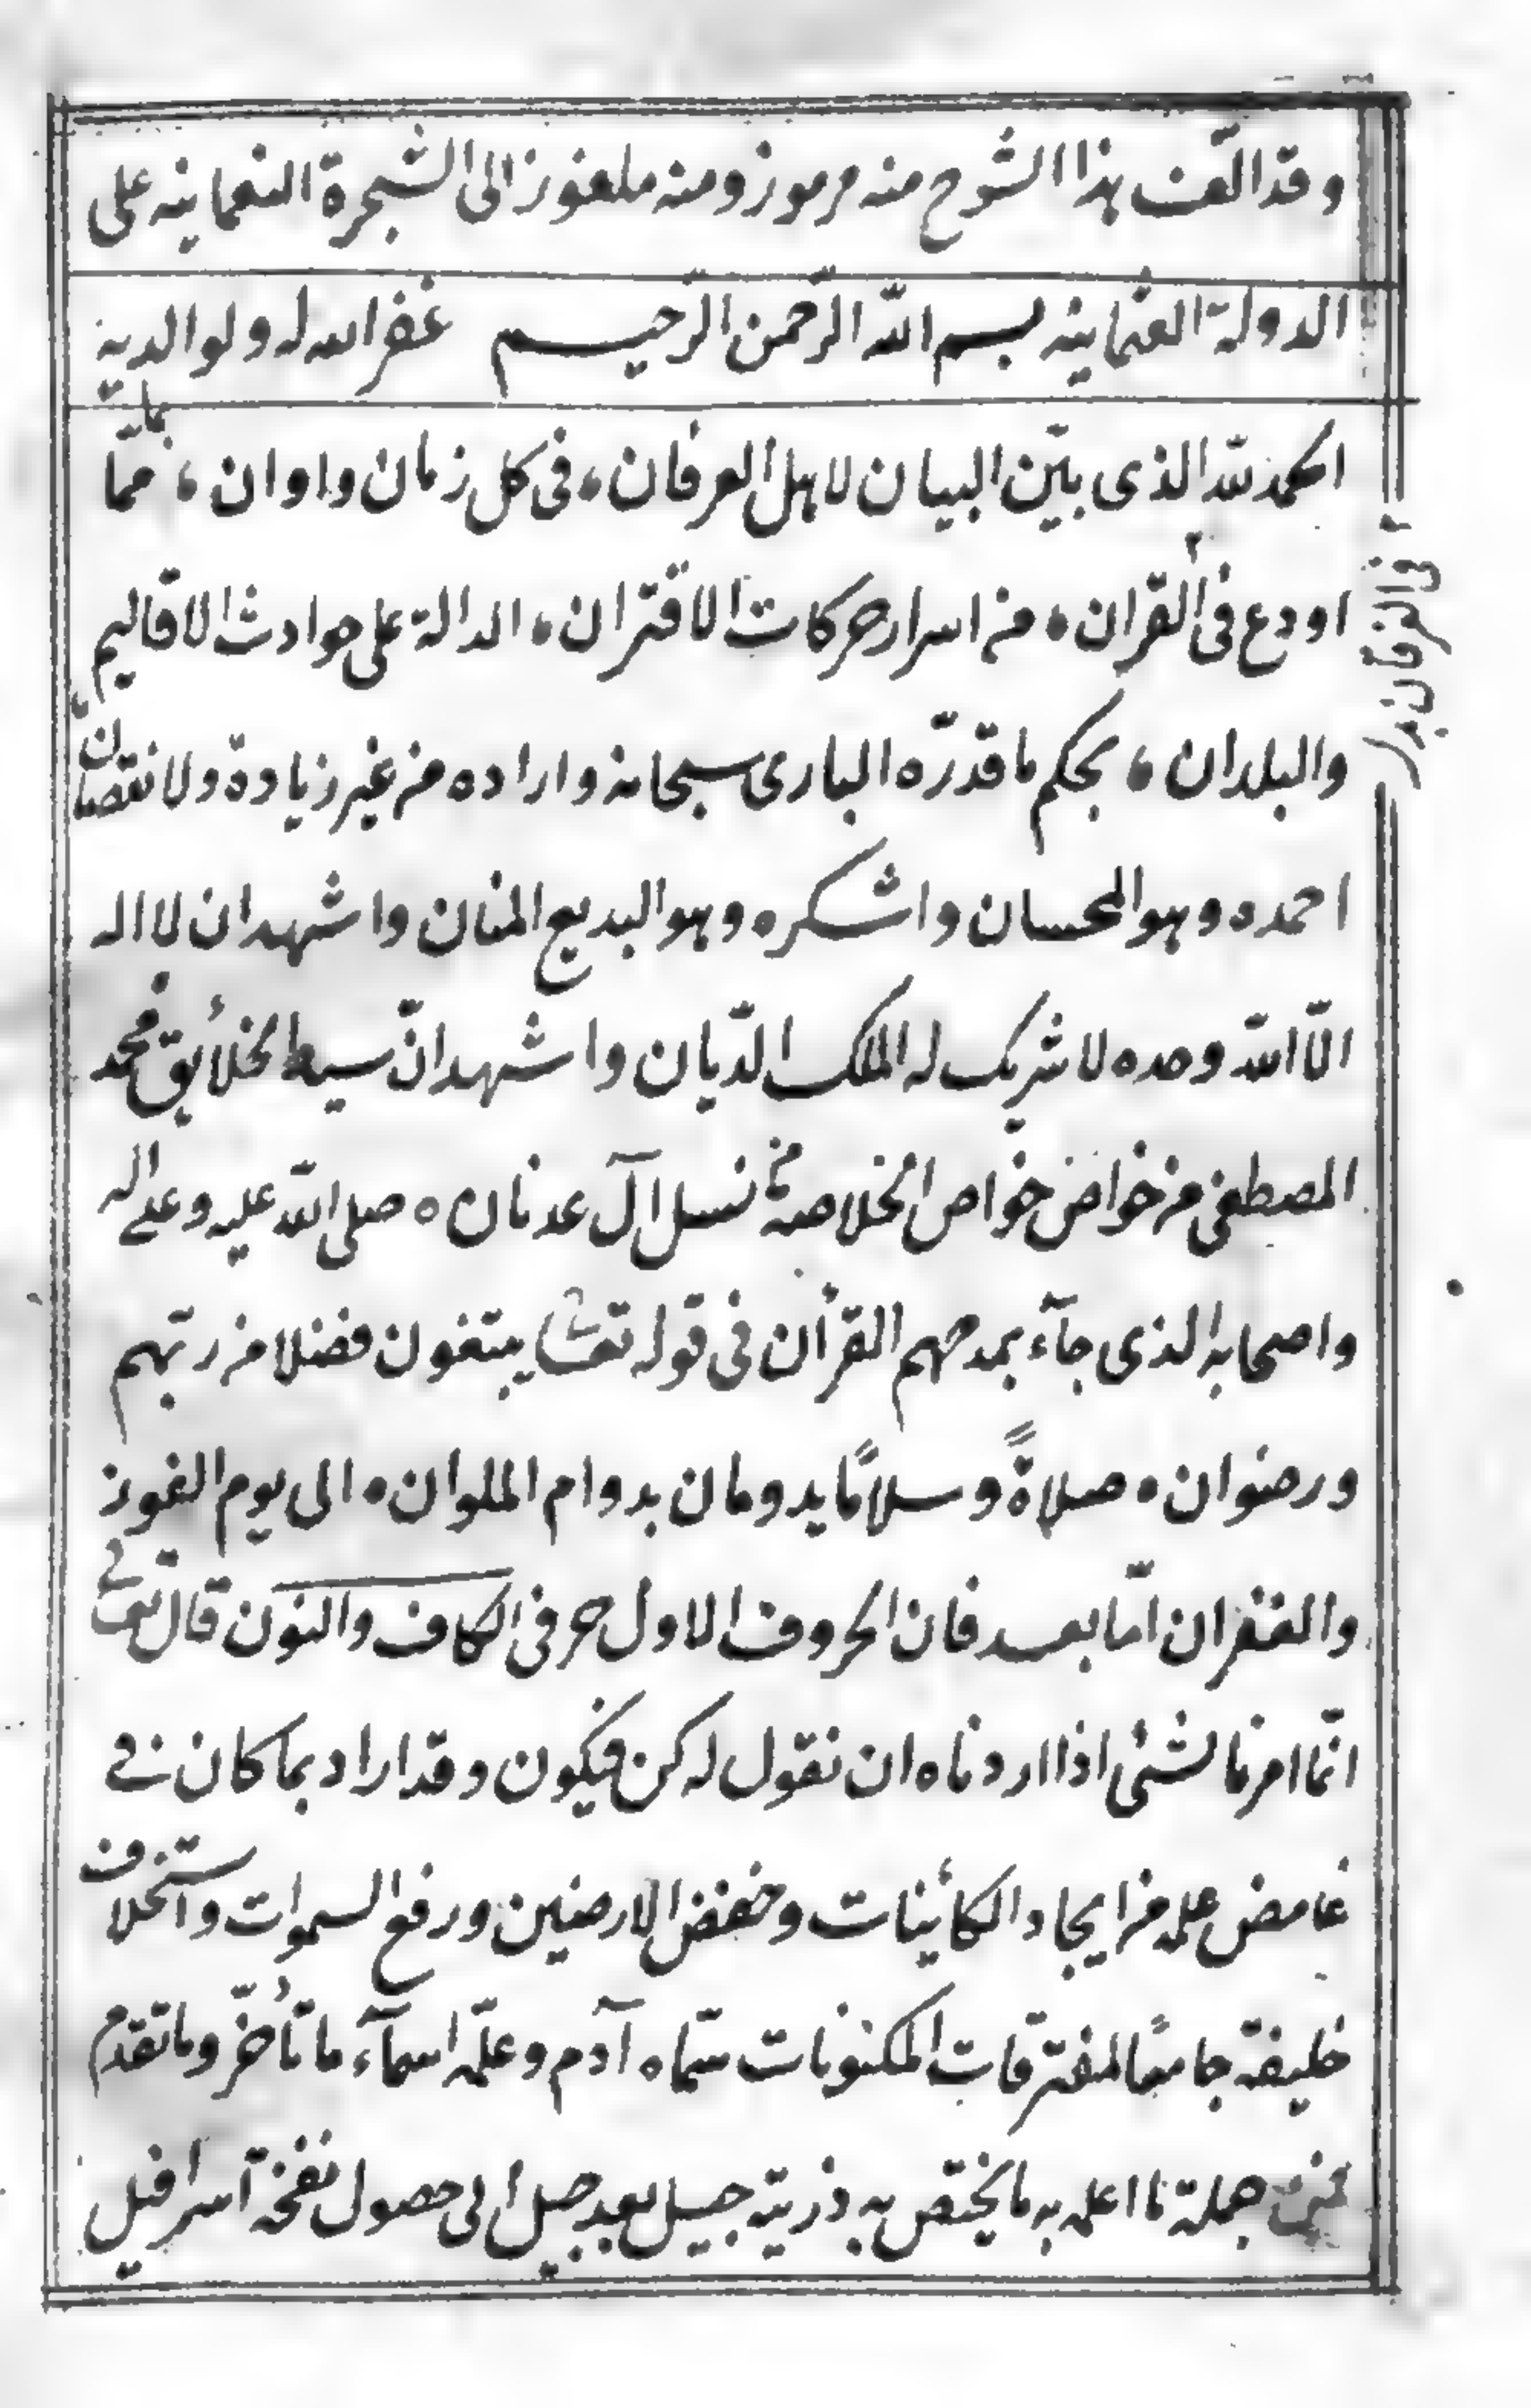 وقد الفت هذا الشرح منه مرموز ومنه ملغوز الى الشجرة النعمانيه على
الدولة العثمانيه بسم الله الرّحمن الرّحيم غفر الله له ولوالديه
الحمد لله الذى بيّن البيان لاهل العرفان، فى كل زمان واوان، ممّا بما
اودع فى القران، من اسرار حركات الاقتران، الدالة على حوادث الاقاليم
فى الفرقان
والبلدان، بحكم ما قدّره البارى سبحانه واراده من غير زيادة ولا نقصان،
احمده وهو المحسان واشكره وهو البديع المنان واشهد ان لا اله
الّا الله وحده لا شريك له الملك الدّيان واشهد انّ سيد الخلأيق محمد
المصطفى من خواص خواص الخلاصة من نسل آل عدنان ه صلى الله عليه وعلى اله
واصحابه الذى جآء بمدحهم القرأن فى قوله تعالى يبتغون فضلا من ربّهم
ورضوان ه صلاةً وسلامًا يدومان بدوام الملوان ه الى يوم الفوز
والغفران امّا بعد فان الحروف الاول حرفى الكاف والنون قال تعالى
انّما امرنا لشئ اذا اردناه ان نقول له كن فيكون وقد اراد بما كان فى
غامض علمه من ايجاد الكأينات وخفض الارضين ورفع السموات واستخلاف
خليفة جامعًا لمفترقات المكنونات سمّاه آدم وعلّمه اسمآء ما تأخّر وما تقدم
فمن جملة ما اعلمه به ما يختص به ذريته جيل بعد جيل الى حصول نفخة اسرافيل